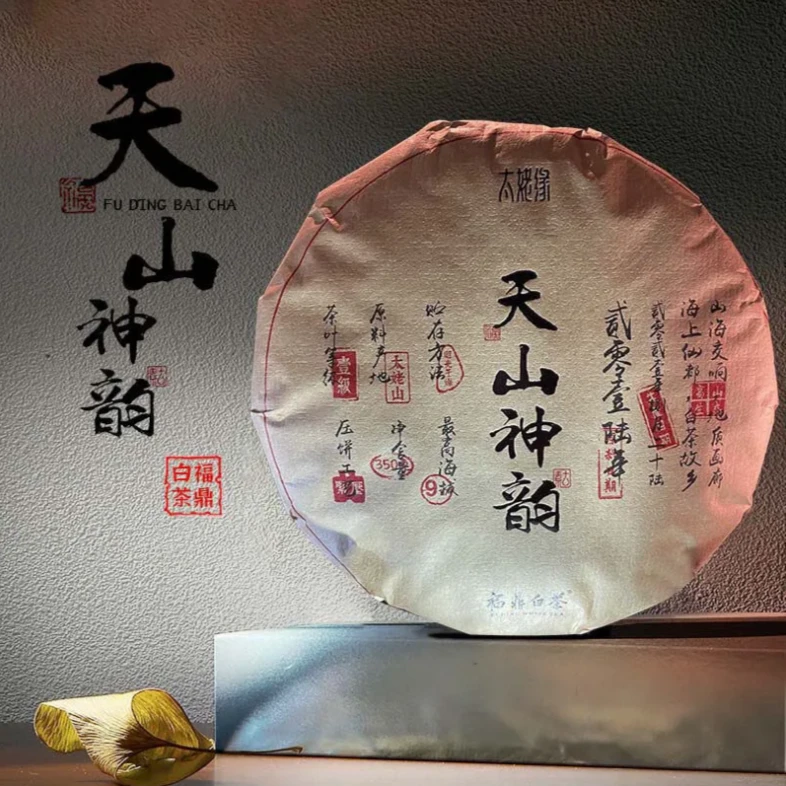 天山神韵
FU DING BAI CHA
福鼎
白茶
太姥缘
山海交响
海上仙都,白茶故乡
贰零壹陆年
天山神韵
贮存方法
原料产地
太姥山
茶叶等级
壹级
最高海拔
9
净含量
350
压饼工艺
福鼎白茶